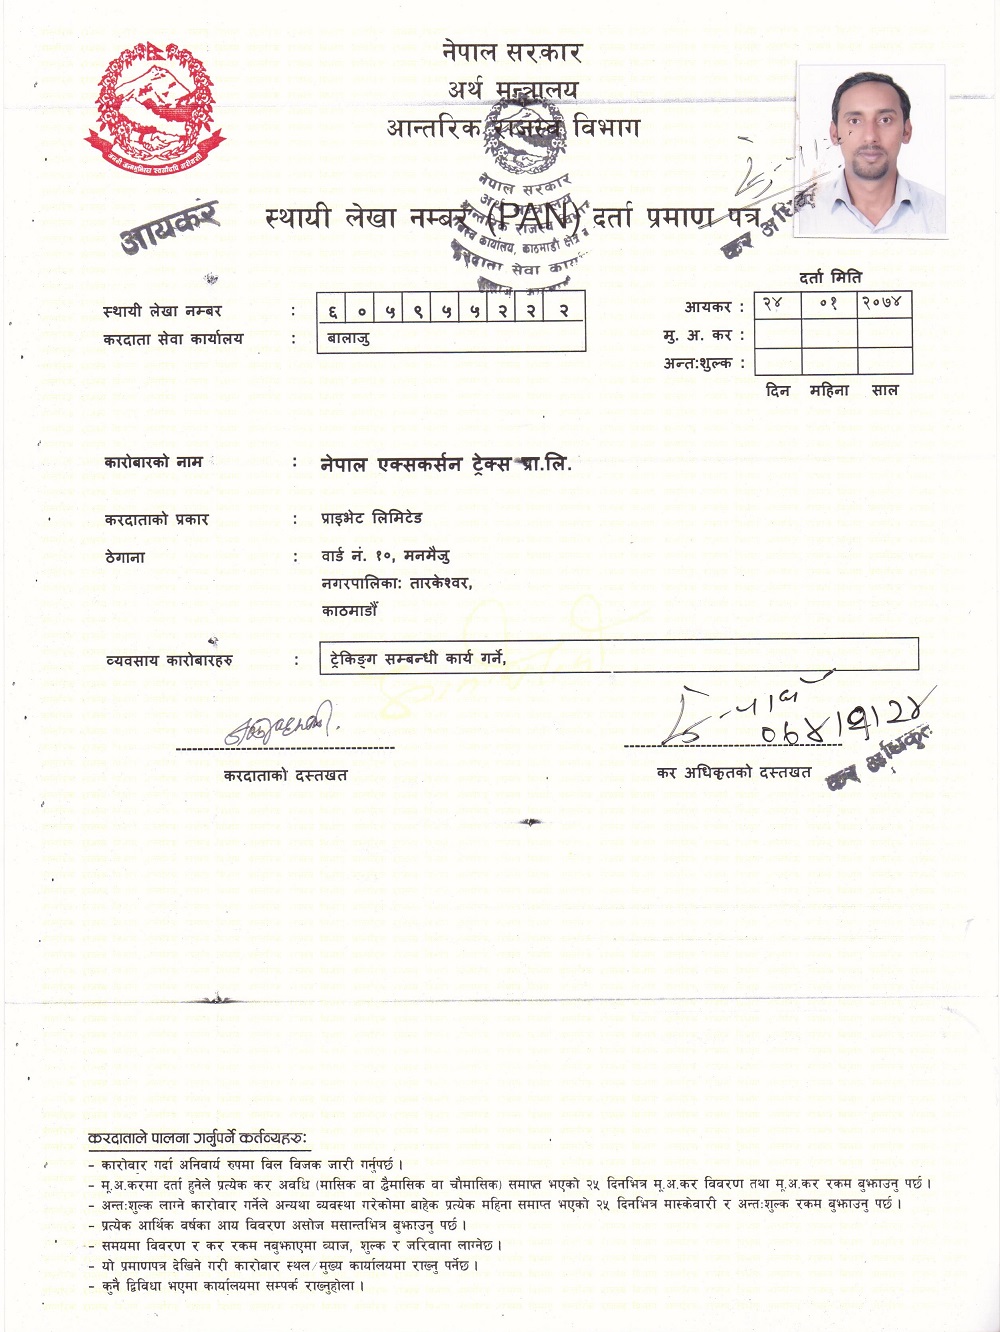 नेपाल सरकार
अर्थ मन्त्रालय
आन्तरिक राजस्व विभाग
स्थायी लेखा नम्बर (PAN) दर्ता प्रमाण पत्र
आयकर
नेपाल सरकार
अर्थ मन्त्रालय
आन्तरिक राजस्व
करदाता सेवा
कर अधिकृत
दर्ता मिति
स्थायी लेखा नम्बर : ६ ० ५ ९ ५ ५ २ २ २
करदाता सेवा कार्यालय : बालाजु
आयकर : २४ ०१ २०७४
मु. अ. कर :
अन्तःशुल्क :
दिन महिना साल
कारोबारको नाम : नेपाल एक्सकर्सन ट्रेक्स प्रा.लि.
करदाताको प्रकार : प्राइभेट लिमिटेड
ठेगाना : वार्ड नं. १०, मनमैजु
नगरपालिका: तारकेश्वर,
काठमाडौं
व्यवसाय कारोबारहरु : ट्रेकिङ्ग सम्बन्धी कार्य गर्ने,
०७४।१।२४
करदाताको दस्तखत
कर अधिकृतको दस्तखत
कर अधिकृत
करदाताले पालना गर्नुपर्ने कर्तव्यहरु:
- कारोवार गर्दा अनिवार्य रुपमा विल विजक जारी गर्नुपर्छ ।
- मू.अ.करमा दर्ता हुनेले प्रत्येक कर अवधि (मासिक वा द्वैमासिक वा चौमासिक) समाप्त भएको २५ दिनभित्र मू.अ.कर विवरण तथा मू.अ.कर रकम बुझाउनु पर्छ ।
- अन्तःशुल्क लाग्ने कारोवार गर्नेले अन्यथा व्यवस्था गरेकोमा बाहेक प्रत्येक महिना समाप्त भएको २५ दिनभित्र मास्केवारी र अन्तःशुल्क रकम बुझाउनु पर्छ ।
- प्रत्येक आर्थिक वर्षका आय विवरण असोज मसान्तभित्र बुझाउनु पर्छ ।
- समयमा विवरण र कर रकम नबुझाएमा व्याज, शुल्क र जरिवाना लाग्नेछ ।
- यो प्रमाणपत्र देखिने गरी कारोबार स्थल/मुख्य कार्यालयमा राख्नु पर्नेछ ।
- कुनै द्विविधा भएमा कार्यालयमा सम्पर्क राख्नुहोला ।